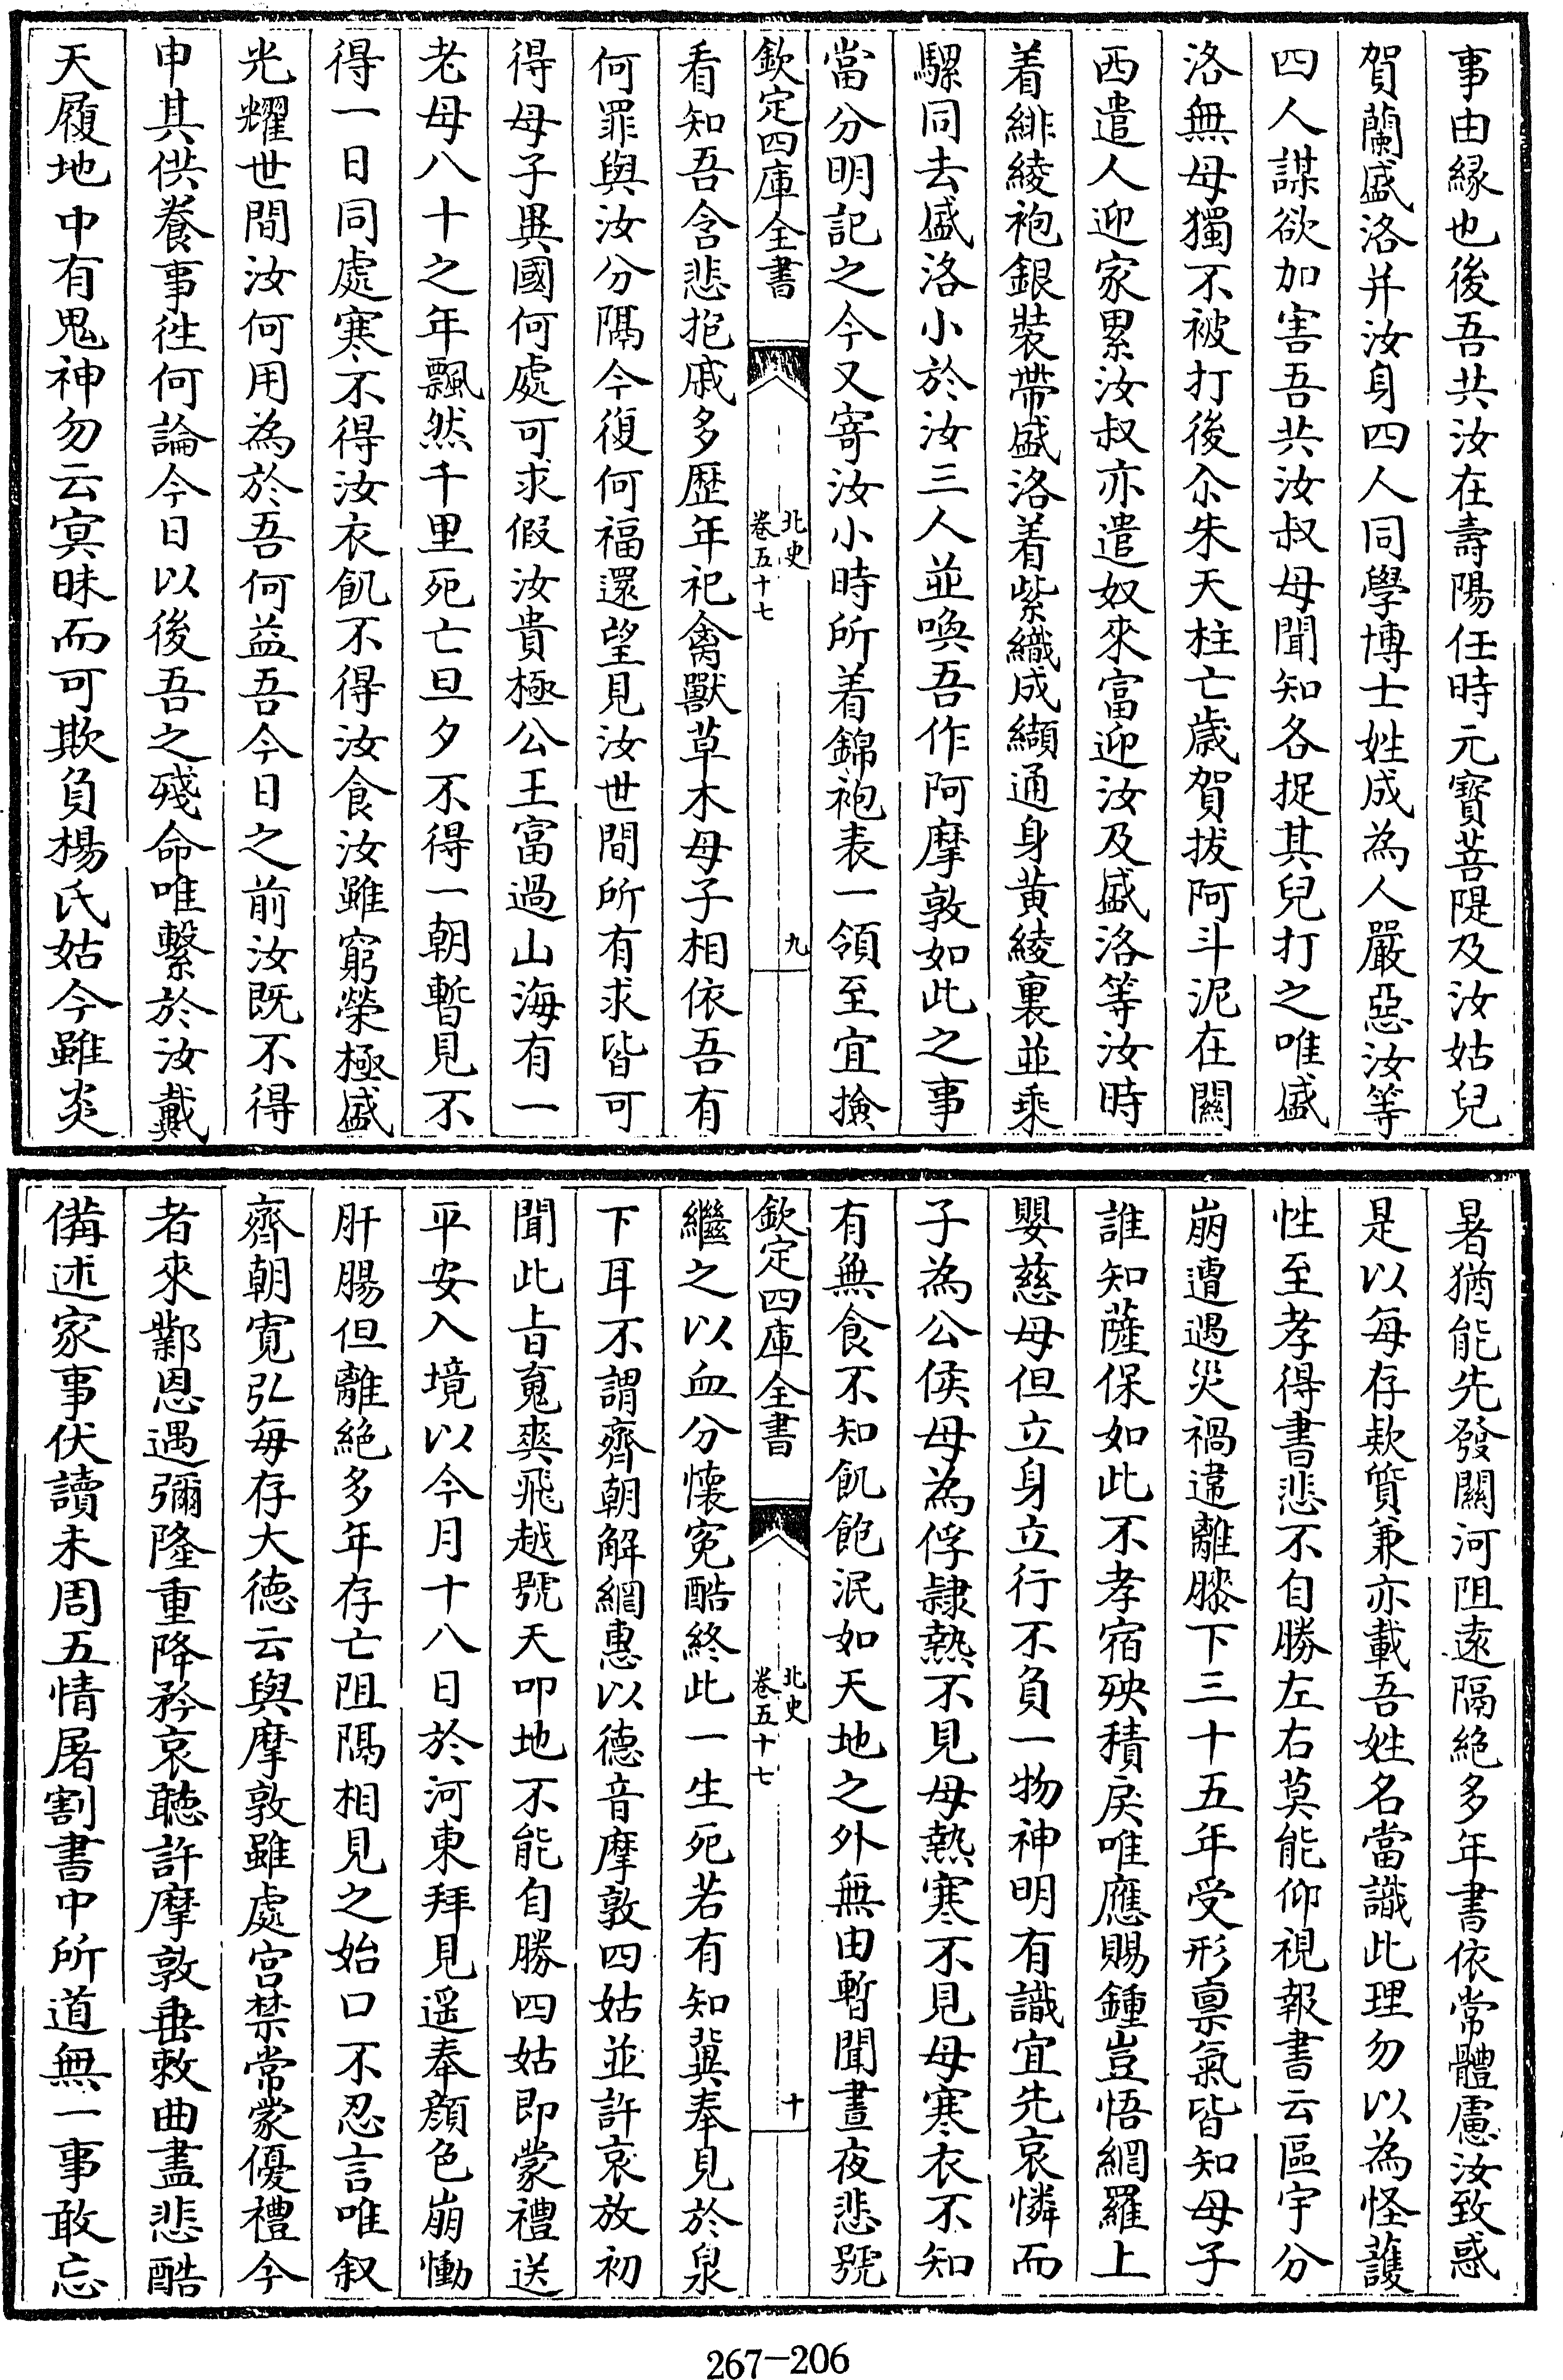 事由緣也後吾共汝在壽陽任時元寶菩隄及汝姑兒
賀蘭盛洛并汝身四人同學博士姓成為人嚴惡汝等
四人謀欲加害吾共汝叔母聞知各捉其兒打之唯盛
洛無母獨不被打後尒朱天柱亡歲賀拔阿斗泥在關
西遣人迎家累汝叔亦遣奴來富迎汝及盛洛等汝時
着緋綾袍銀裝帶盛洛着紫織成纈通身黃綾裏並乘
騾同去盛洛小於汝三人並喚吾作阿摩敦如此之事
當分明記之今又寄汝小時所着錦袍表一領至宜撿
欽定四庫全書
北史
卷五十七
九
看知吾含悲抱戚多歷年祀禽獸草木母子相依吾有
何罪與汝分隔今復何福還望見汝世間所有求皆可
得母子異國何處可求假汝貴極公王富過山海有一
老母八十之年飄然千里死亡旦夕不得一朝暫見不
得一日同處寒不得汝衣飢不得汝食汝雖窮榮極盛
光耀世間汝何用為於吾何益吾今日之前汝既不得
申其供養事往何論今日以後吾之殘命唯繫於汝戴
天履地中有鬼神勿云冥昧而可欺負楊氏姑今雖炎
暑猶能先發關河阻遠隔絕多年書依常體慮汝致惑
是以每存欵質兼亦載吾姓名當識此理勿以為怪護
性至孝得書悲不自勝左右莫能仰視報書云區宇分
崩遭遇災禍違離膝下三十五年受形禀氣皆知母子
誰知薩保如此不孝宿殃積戾唯應賜鍾豈悟網羅上
嬰慈母但立身立行不負一物神明有識宜先哀憐而
子為公侯母為俘隷熱不見母熱寒不見母寒衣不知
有無食不知飢飽泯如天地之外無由暫聞晝夜悲號
欽定四庫全書
北史
卷五十七
十
繼之以血分懷冤酷終此一生死若有知冀奉見於泉
下耳不謂齊朝解網惠以德音摩敦四姑並許哀放初
聞此旨䰟爽飛越號天叩地不能自勝四姑即蒙禮送
平安入境以今月十八日於河東拜見遥奉顔色崩慟
肝腸但離絕多年存亡阻隔相見之始口不忍言唯叙
齊朝寛弘每存大德云與摩敦雖處宫禁常蒙優禮今
者來鄴恩遇彌隆重降矜哀聽許摩敦垂敕曲盡悲酷
備述家事伏讀未周五情屠割書中所道無一事敢忘
267-206